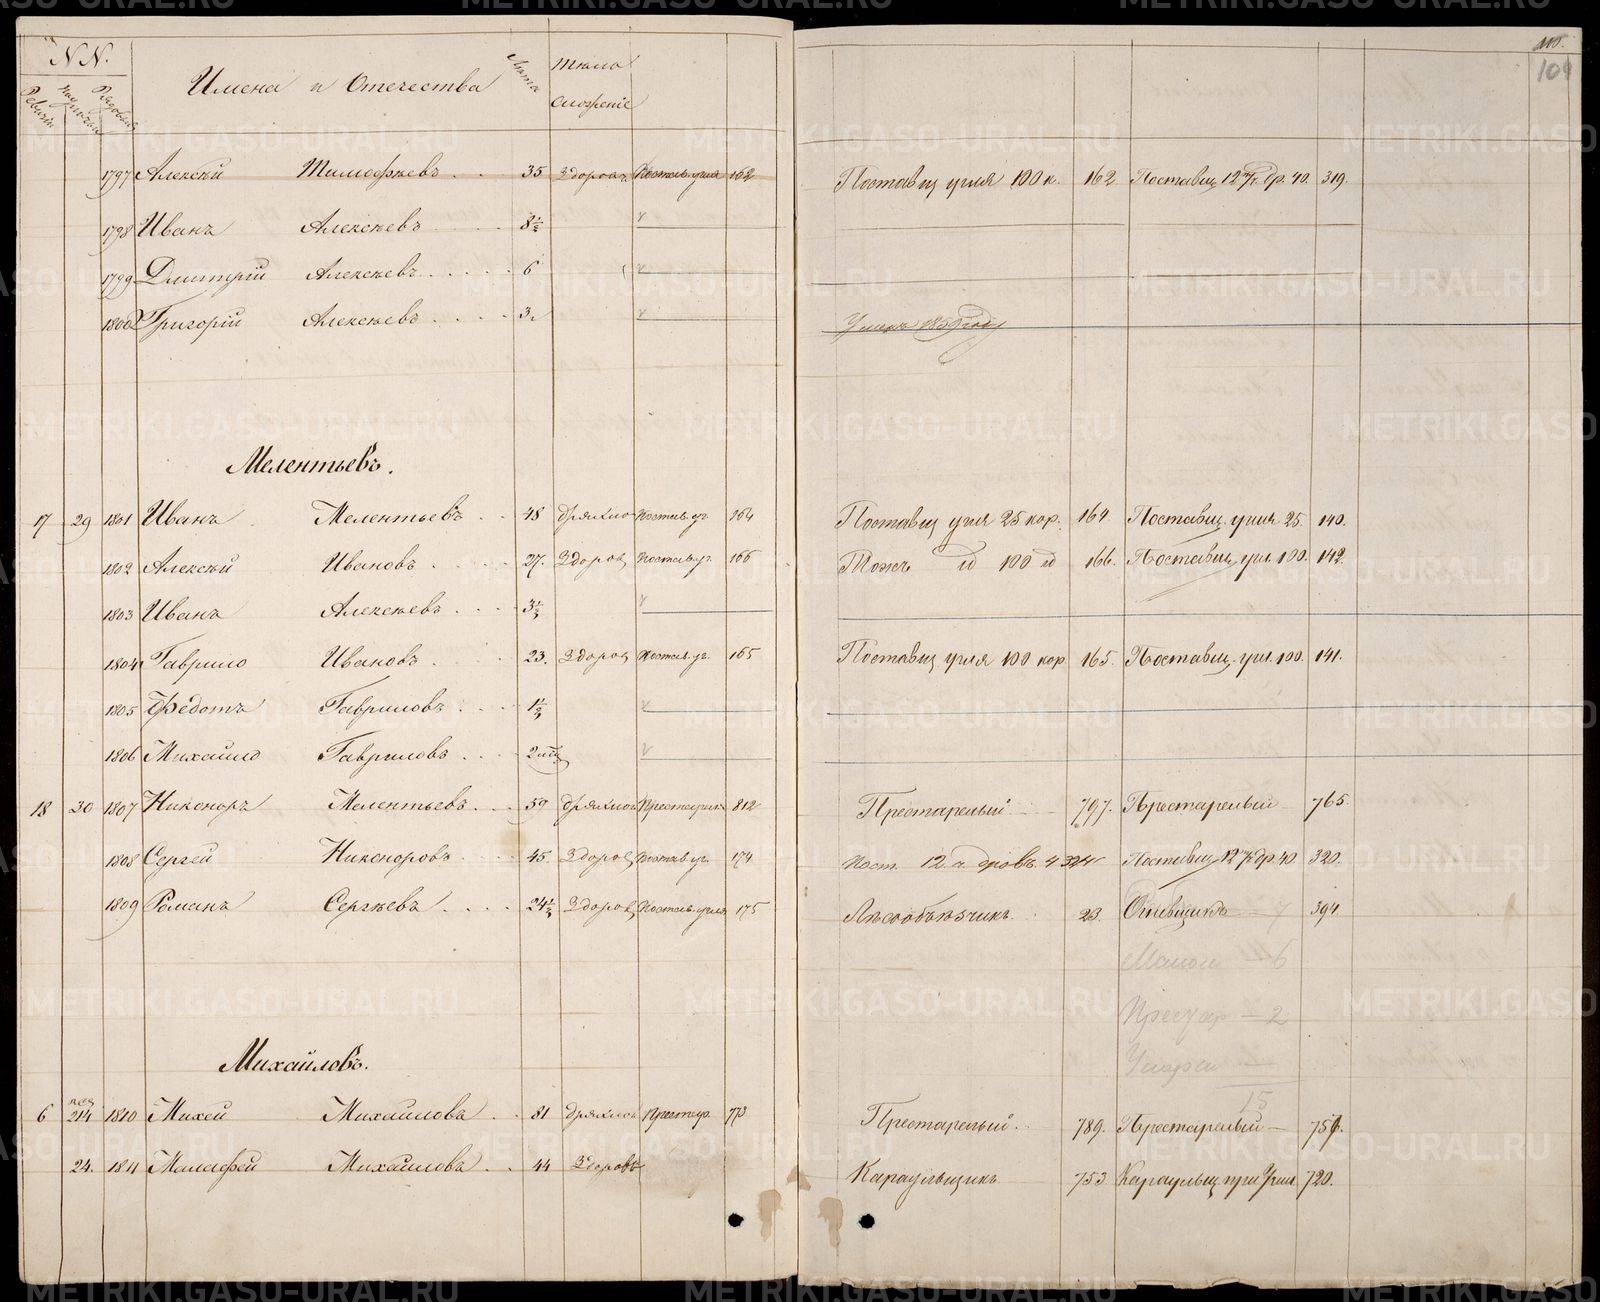 N N.
Ревизіи
Рядовые
Имена и Отечества
Лѣта
Тѣло
сложеніе
110.
109
1797 Алексѣй Тимофѣевъ . . 35 Здоровъ Постав. угля 162 Поставщ угля 100 к. 162 Поставщ 12 др. 40. 319.
1798 Иванъ Алексѣевъ . . . . 8½
1799 Дмитрій Алексѣевъ . . . . . 6
1800 Григорій Алексѣевъ . . . . 3. Умеръ 1859 году
Мелентьевъ.
17 29 1801 Иванъ Мелентьевъ . . 48 дряхлой Постав. уг. 164 Поставщ угля 25 кор. 164. Поставщ. угля 25. 140.
1802 Алексѣй Ивановъ . . . . 27. Здоров Постав. уг. 166 Тожъ 100 166. Поставщ угл. 100. 142.
1803 Иванъ Алексѣевъ . . . 3½
1804 Гаврило Ивановъ . . . . 23. Здоров Постав. уг. 165 Поставщ угля 100 кор 165. Поставщ. угл. 100. 141.
1805 Федотъ Гавриловъ . . . 1½
1806 Михайло Гавриловъ . . . 2 мѣс
18 30 1807 Никоноръ Мелентьевъ . . . 59 дряхлой Престарѣл 812 Престарелый 797. Престарелый 765.
1808 Сергей Никоноровъ . . . 45. Здоров Постав. уг. 174 Пост. 12. ч. дровъ. 4 324 Поставщ 12 др. 40 320.
1809 Романъ Сергѣевъ . . . . 24½ Здоров Постав. угля 175 Лѣсообъѣзчикъ 23. 394
Малол — 6
Престар — 2
15
Михайловъ.
6 214 1810 Михей Михайловъ . . 81 дряхлой Престар. 773 Престарелый. 789. Престарелый — 756.
24. 1811 Малафей Михайловъ . . 44 Здоровъ Караульщикъ 753 Караульщ при 720.
METRIKI.GASO-URAL.RU